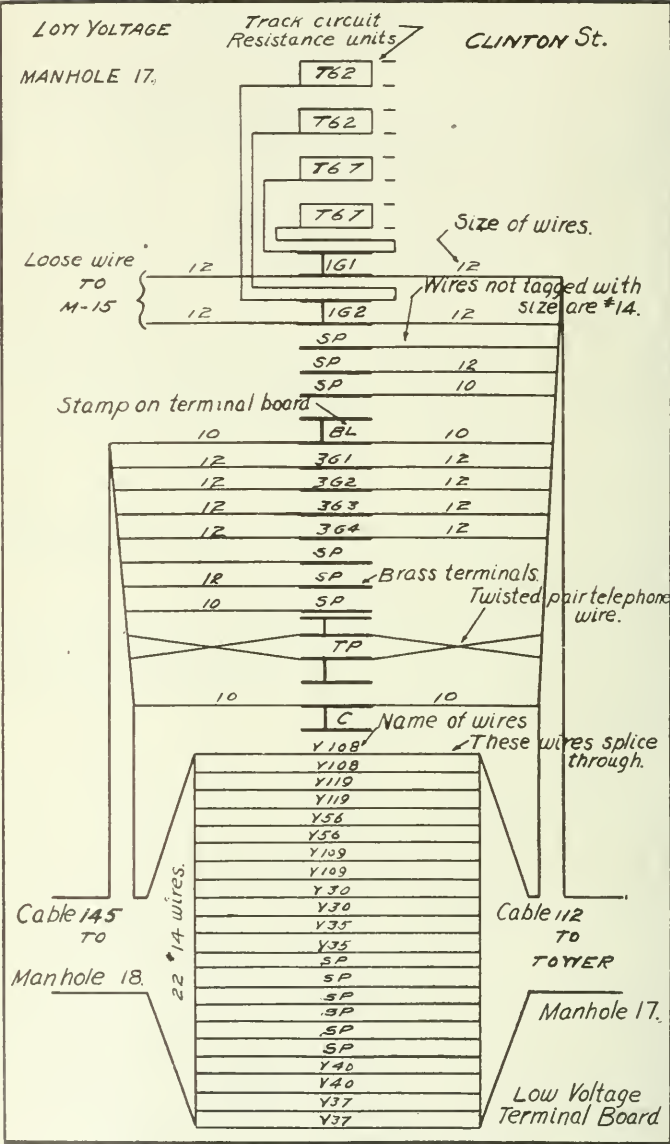 LOW VOLTAGE
Track circuit
Resistance units
CLINTON St.
MANHOLE 17.
T62
T62
T67
T67
Size of wires.
Loose wire
TO
M-15
12
1G1
12
Wires not tagged with
size are #14.
12
1G2
12
SP
SP
12
SP
10
Stamp on terminal board
10
BL
10
12
3G1
12
12
3G2
12
12
3G3
12
12
3G4
12
SP
12
SP
Brass terminals.
10
SP
Twisted pair telephone
wire.
TP
10
10
C
Name of wires
Y108
These wires splice
through.
Y108
Y119
Y119
Y56
Y56
Y109
Y109
Y30
Y30
Y35
Y35
SP
SP
SP
SP
SP
SP
Y40
Y40
Y37
Y37
22 #14 wires.
Cable 145
TO
Manhole 18.
Cable 112
TO
TOWER
Manhole 17.
Low Voltage
Terminal Board